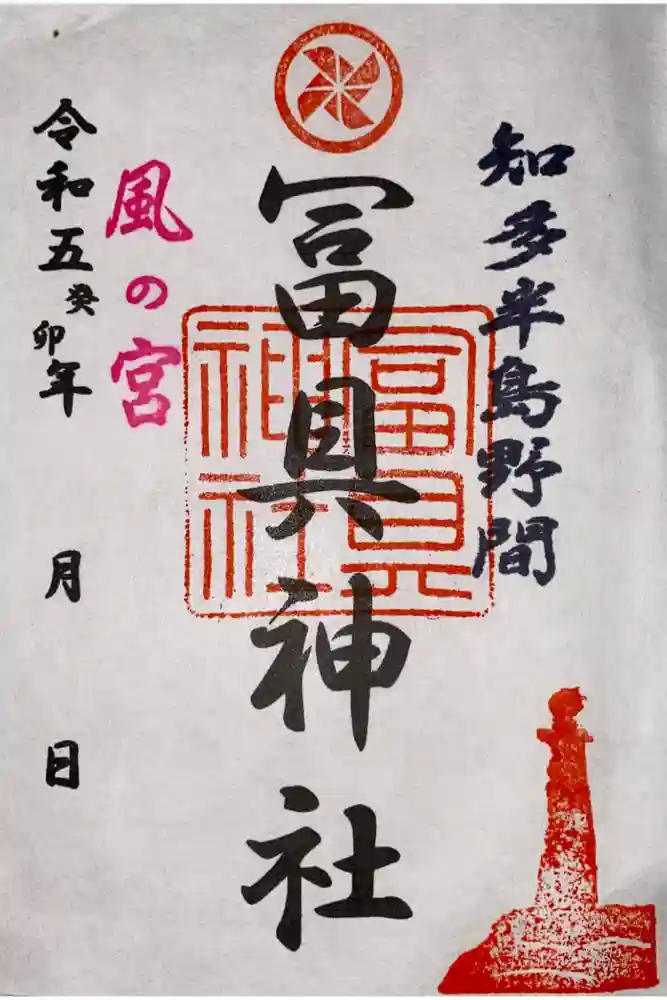 知多半島野間
冨具神社
冨具
神社
風の宮
令和五癸卯年
月
日